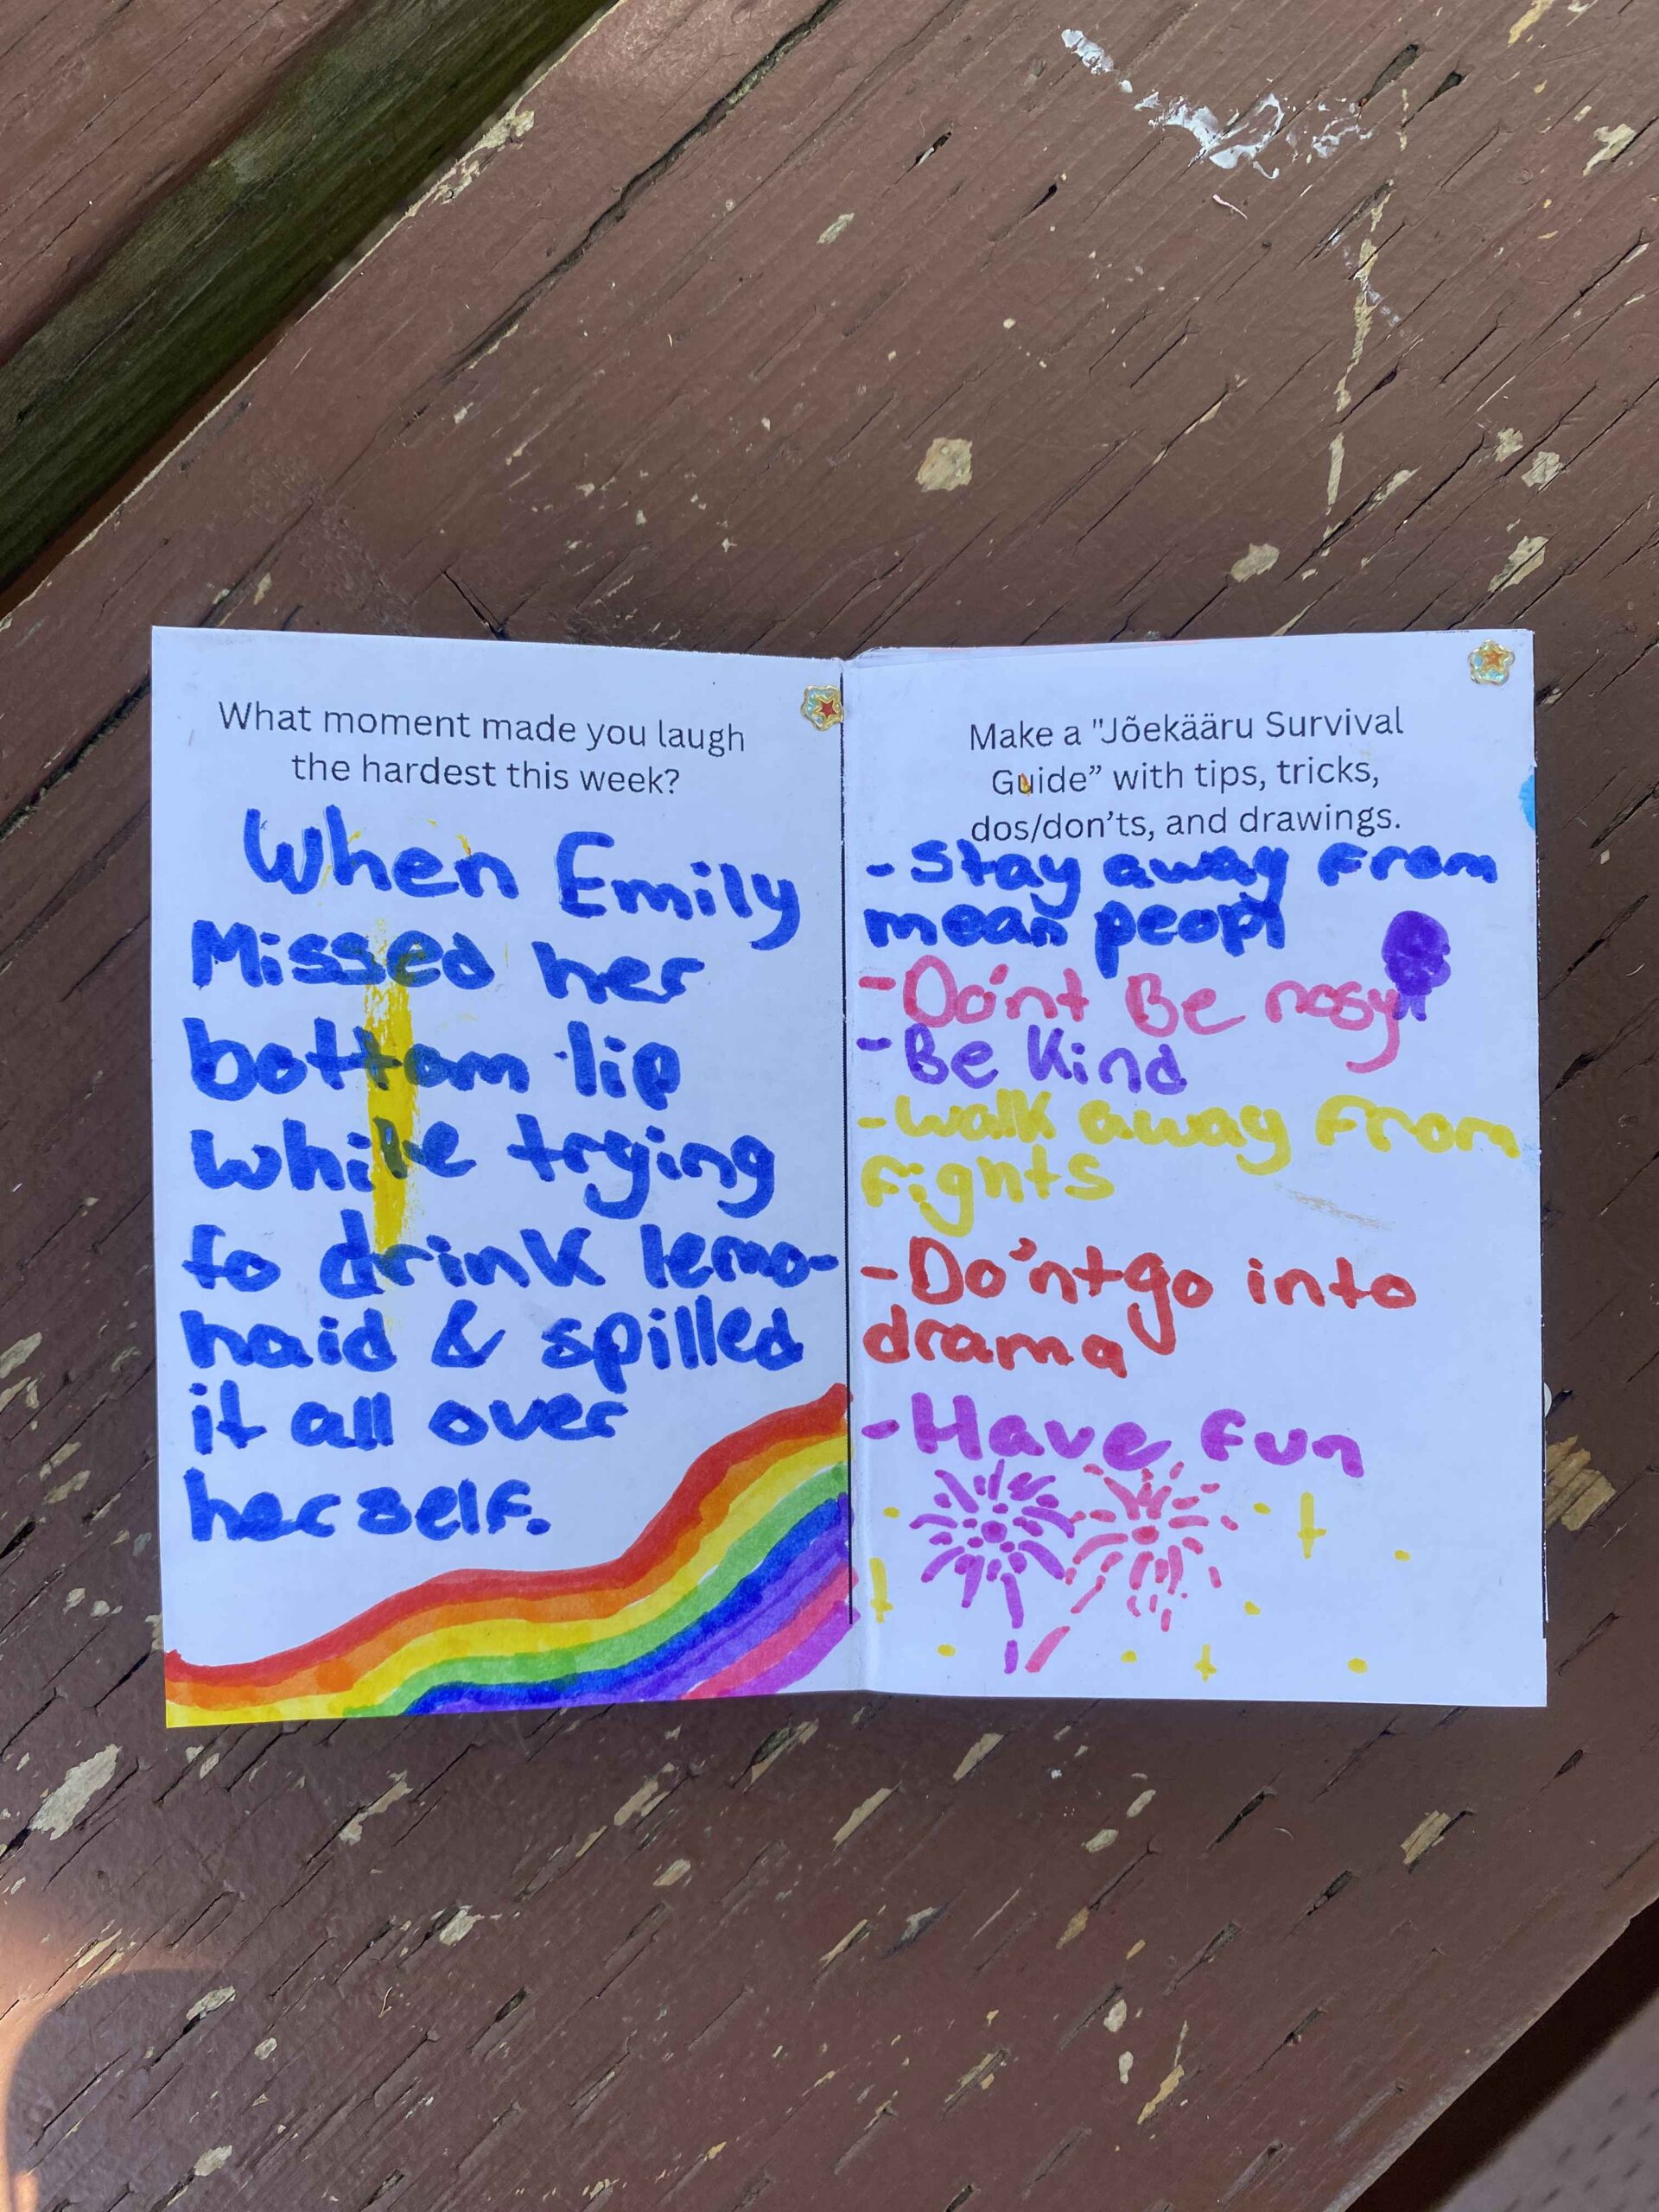 What moment made you laugh
the hardest this week?
When Emily
Missed her
bottom lip
while trying
to drink lemo-
naid & spilled
it all over
herself.
Make a "Jõekääru Survival
Guide” with tips, tricks,
dos/don’ts, and drawings.
- Stay away from
mean peopl
- Do'nt Be nosy
- Be Kind
- walk away from
fights
- Do'nt go into
drama
- Have fun